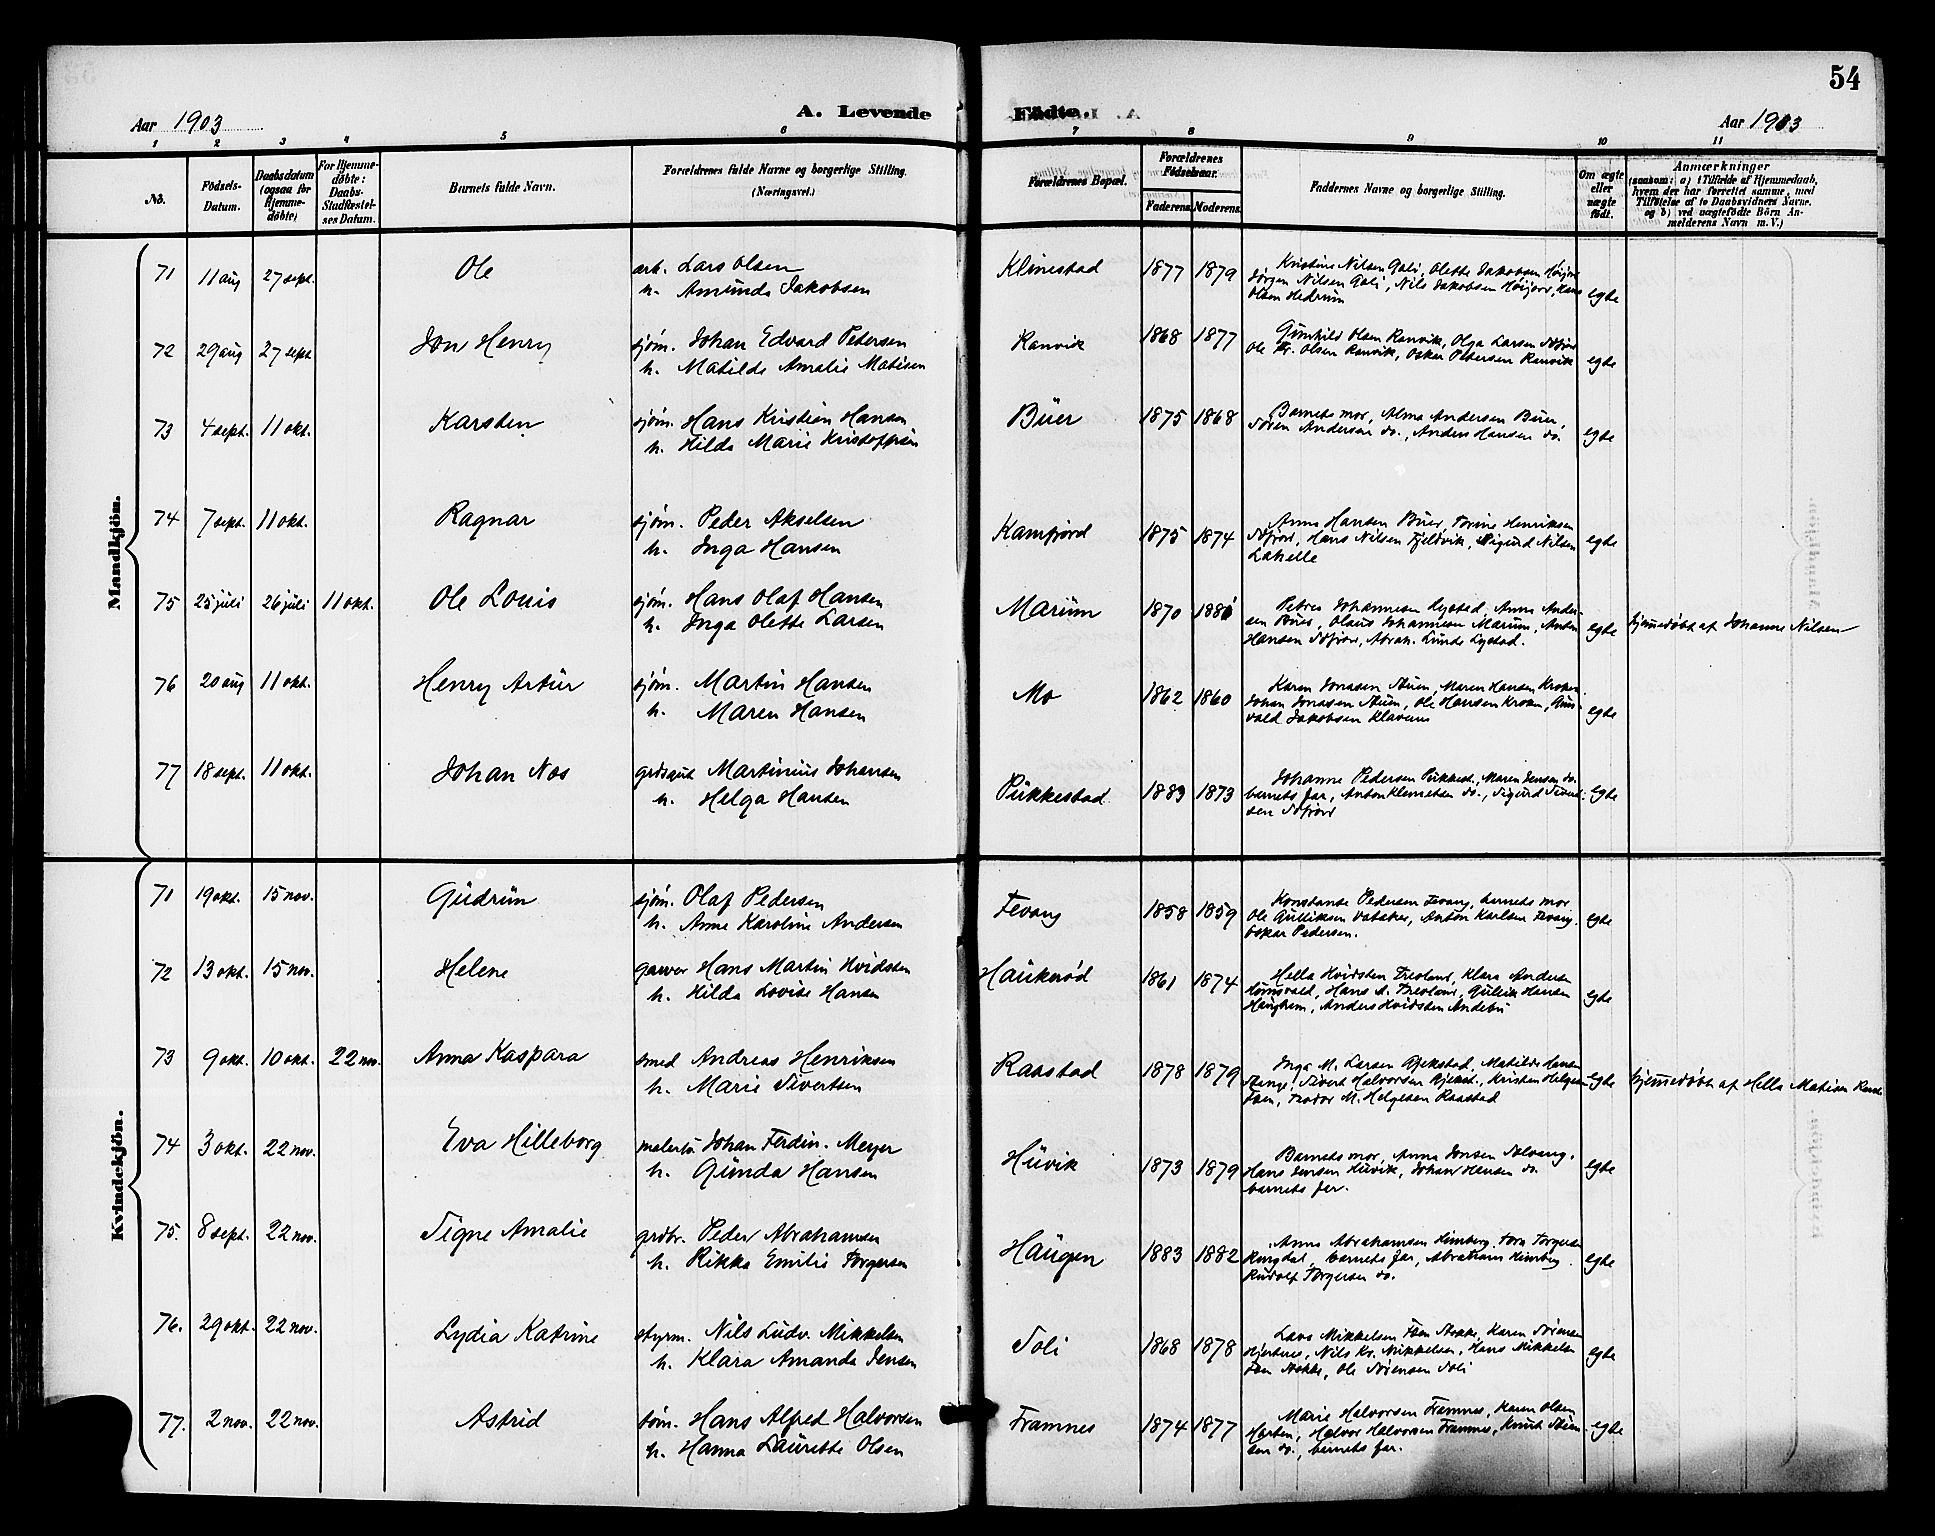 54
Aar 1903
A. Levende
Födte.
Aar 1903
1 2 3 4 5 6 7 8 9 10 11
No.
Födsels-Datum.
Daabsdatum (ogsaa for Hjemmedöbte)
For Hjemmedöbte: Daabs-Stadfæstelses Datum.
Barnets fulde Navn.
Forældrenes fulde Navne og borgerlige Stilling. (Næringsvei.)
Forældrenes Bopæl.
Forældrenes Födselsaar.
Faderens. Moderens.
Faddernes Navne og borgerlige Stilling.
Om ægte eller uægte födt.
Anmærkninger
(saasom: a) i Tilfælde af Hjemmedaab, hvem der har forrettet samme, med Tilföielse af to Daabsvidners Navne, og b) ved uægtefödte Börn Anmelderens Navn m. V.)
Mandkjön.
71 11 aug 27 sept. Ole arb. Lars Olsen
h. Amunda Jakobsen
Klinestad 1877 1879 Kristine Nilsen Gali, Olette Jakobsen
Jörgen Nilsen Gali, Nils Jakobsen Høijord, Hans
Olsen Hedrum egte
72 29 aug 27 sept Jon Henry sjøm. Johan Edvard Petersen
h. Matilde Amalie Matisen
Ranvik 1868 1877 Gunhild Olsen Ranvik, Olga Larsen
Ole Kr. Olsen Ranvik, Oskar Petersen Ranvik egte
73 4 sept. 11 okt. Karsten sjøm. Hans Kristian Hansen
h. Hilda Marie Kristoffersen
Buer 1875 1868 Barnets mor, Alma Andersen Buer,
Søren Andersen do., Anders Hansen do. egte
74 7 sept. 11 okt. Ragnar sjøm. Peder Akselsen
h. Inga Hansen
Kamfjord 1875 1874 Anna Hansen Buer, Torine Henriksen
Hans Nilsen Fjeldvik, Sigurd Nilsen
Lahelle egte
75 25 juli 26 juli 11 okt. Ole Louis sjøm. Hans Olaf Hansen
h. Inga Olette Larsen
Marum 1870 1881 Petrea Johannesen Lystad, Anna Andersen
Buer, Olaus Johannesen Marum, Anton
Hansen Abrah. Lunde Lystad. egte hjemmedøbt af Johanne Nilsen
76 20 aug 11 okt. Henry Artur sjøm. Martin Hansen
h. Maren Hansen
Mo 1862 1860 Karen Jonasen Stuen, Maren Hansen Kroken
Johan Jonasen Stuen, Ole Hansen Kroken,
Jakobsen Klavenes egte
77 18 sept. 11 okt. Johan Nos grdsgut Martinius Johansen
h. Helga Hansen
Pukkestad 1883 1873 Johanne Pedersen Pukkest., Maren Jensen do.
barnets far, Anton Klemetsen do., Sigurd Sivertsen
egte
Kvindekjön.
71 19 okt. 15 nov. Gudrun sjøm. Olaf Pedersen
h. Anna Karoline Andersen
Fevang 1858 1859 Konstanse Pedersen Fevang, barnets mor
Ole Gulliksen Vataker, Anton Karlsen Fevang.
Oskar Pedersen. egte
72 13 okt. 15 nov. Helene garver Hans Martin Hvidsten
h. Hilda Lovise Hansen
Haukerød 1861 1874 Hella Hvidsten Klara Andersen
Hans A. Gullik Hansen
Haughem, Anders Hvidsten Andebu egte
73 9 okt. 10 okt. 22 nov. Anna Kaspara smed Andreas Henriksen
h. Marie Sivertsen
Raastad 1878 1879 Inga M. Larsen Gjekstad, Matilde Hansen
Stange, Sivert Halvorsen Gjekst., Kristen Helgesen
Fæn, Teodor M. Helgesen Raastad egte hjemmedøbt af Hella Matisen
74 3 okt. 22 nov. Eva Hilleborg Johan Ferdin. Meyer
h. Gunda Hansen
Huvik 1873 1879 Barnets mor, Anna Jonsen Solvang.
Hans Jensen Huvik, Johan Hansen do.
barnets far. egte
75. 8 sept. 22 nov. Signe Amalie grdbr. Peder Abrahamsen
h. Rikka Emilie Torgersen
Haugen 1883 1882 Anna Abrahamsen Kimberg. Torgersen
Ringdal, barnets far, Abraham Kimberg.
Rudolf Torgersen do. egte
76. 29 okt. 22 nov. Lydia Katrine styrm. Nils Ludv. Mikkelsen
h. Klara Amanda Jensen
Soli 1868 1878 Lava Mikkelsen Fæn Stokke, Karen Sørensen
Hjertnes, Nils Kr. Mikkelsen, Hans Mikkelsen
Fæn Stokke, Ole Sørensen Soli egte
77. 2 nov. 22 nov. Astrid tøm. Hans Alfred Halvorsen
h. Hanna Laurette Olsen
Framnes 1874 1877 Marie Halvorsen Framnes, Karen Olsen
Horten, Halvor Halvorsen Framnes, Knut
do., barnets far. egte